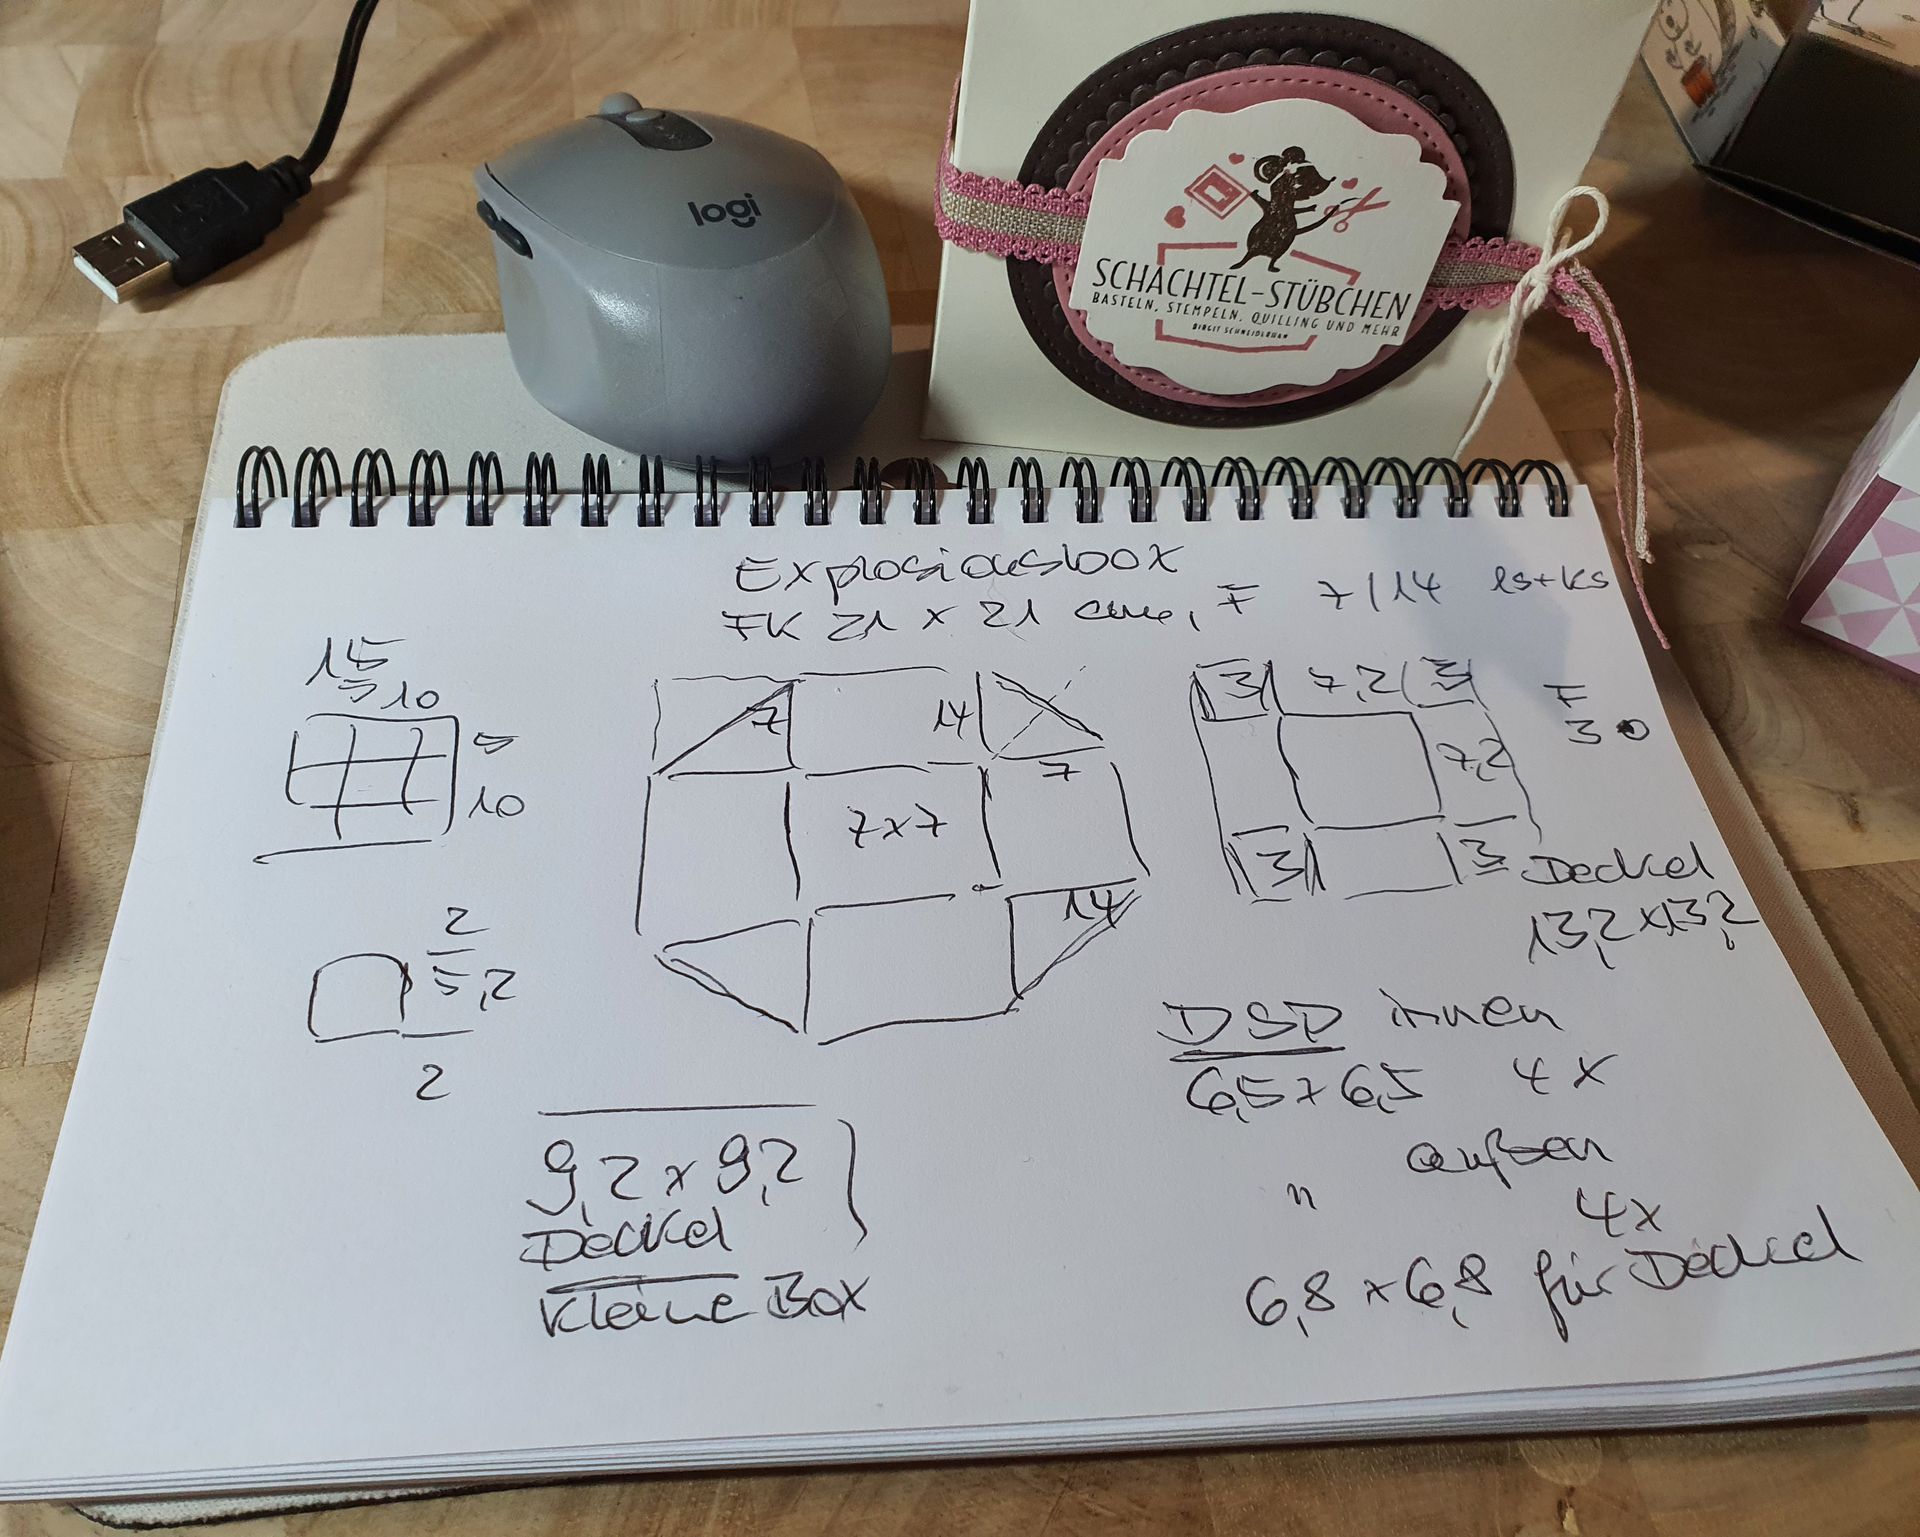 logi
SCHACHTEL-STÜBCHEN
BASTELN, STEMPELN, QUILLING UND MEHR
BIRGIT SCHNEIDERHAN
Explosionsbox
FK 21 x 21 cm, F 7/14 ls+ks
15
5 10
5
10
7
14
7
7x7
14
3 7,2 3
7,2
3 3
F
3
Deckel
13,2 x 13,2
2
5,2
2
DSP innen
6,5 x 6,5 4x
" außen
4x
6,8 x 6,8 für Deckel
9,2 x 9,2
Deckel
Kleine Box